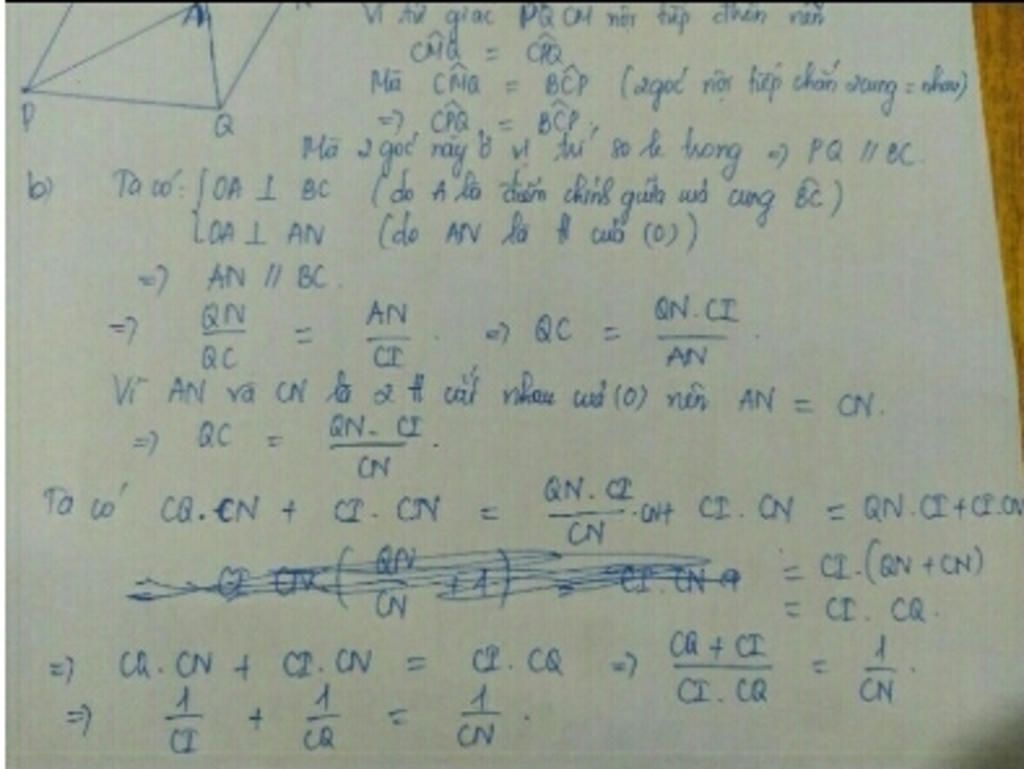 Vì tứ giác PQCM nội tiếp nên
CM̂Q = CP̂Q
Mà CM̂Q = BĈP (2 góc nội tiếp chắn 2 cung = nhau)
=> CP̂Q = BĈP.
P
Q
Mà 2 góc này ở vị trí so le trong => PQ // BC.
b) Ta có: { OA ⊥ BC (do A là điểm chính giữa của cung BC)
OA ⊥ AN (do AN là tt của (O))
=> AN // BC.
=> QN/QC = AN/CI . => QC = QN.CI/AN .
Vì AN và CN là 2 tt cắt nhau của (O) nên AN = CN.
=> QC = QN.CI/CN .
Ta có CQ.CN + CI.CN = QN.CI/CN .CN + CI.CN = QN.CI+CI.CN
= CI.(QN+CN)
= CI.CQ.
=> CQ.CN + CI.CN = CI.CQ => CQ+CI/CI.CQ = 1/CN .
=> 1/CI + 1/CQ = 1/CN .